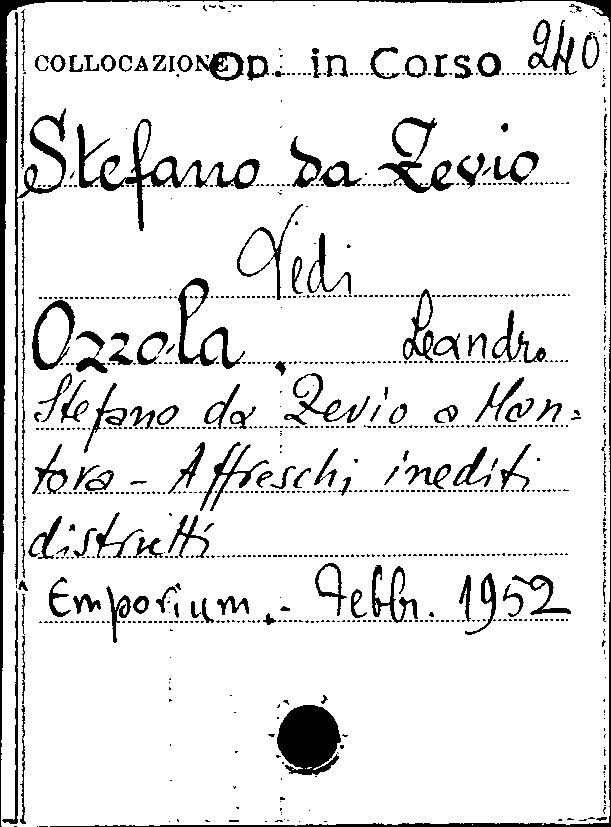 COLLOCAZIONE Op. in Corso 240
Stefano da Zevio
Vedi
Ozzola. Leandro
Stefano da Zevio a Man=
tova - Affreschi inediti
distrutti
Emporium.- Febbr. 1952